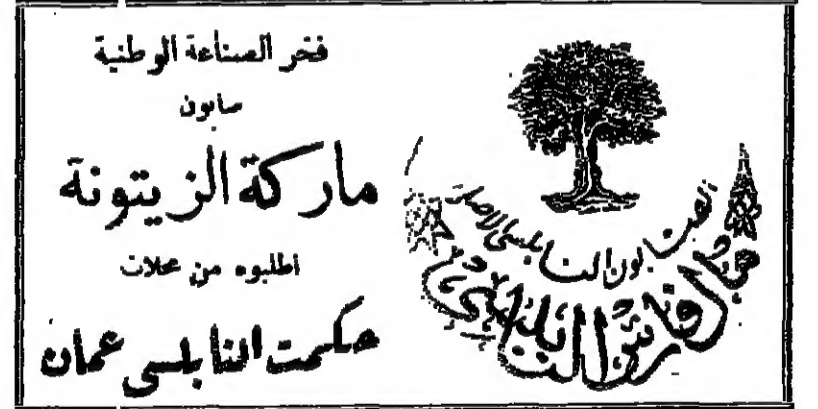 فخر الصناعة الوطنية
صابون
ماركة الزيتونة
اطلبوه من محلات
حكمت النابلسي عمان
الصابون النابلسي الاصلي
النابلسي